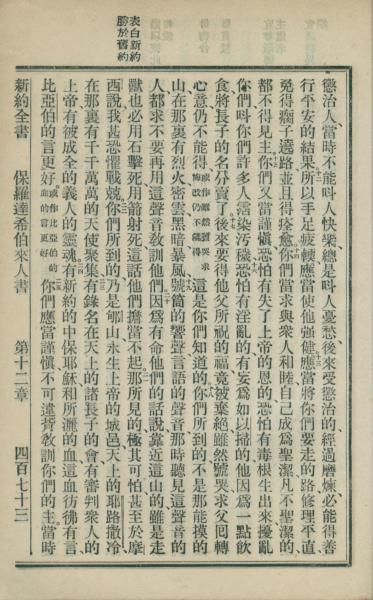 表白新約
勝於舊約
懲治人當時不能叫人快樂總是叫人憂愁後來受懲治的經過磨煉必能得善
行平安的結果所以手足疲輭應當使他強健應當將你們要走的路修理平直
免得瘸子遶路並且得痊愈你們當求與衆人和睦自己成爲聖潔凡不聖潔的
都不得見主你們又當謹愼恐怕有失了上帝的恩的恐怕有毒根生出來擾亂
你們叫你們許多人霑染汚穢恐怕有淫亂的有妄爲如以掃的他因爲一點飲
食將長子的名分賣了後來要得他父所祝的福竟被棄絕雖然號哭求父囘轉
心意仍不能得這是你們知道的你們所到的不是那能摸的
山在那裏有烈火密雲黑暗暴風號筩的響聲言語的聲音那時聽見這聲音的
人都求不要再用這聲音敎訓他們因爲有命他們的話說靠近這山的雖是走
獸也必用石擊死用箭射死這話他們擔當不起那所見的極其可怕甚至於摩
西說我甚恐懼戰兢你們所到的乃是郇山永生上帝的城邑天上的耶路撒冷
在那裏有千千萬萬的天使聚集有錄名在天上的諸長子的會有審判衆人的
上帝有被成全的義人的靈魂有新約的中保耶穌和所灑的血這血彷彿有言
比亞伯的言更好或作比亞伯的血的言更好你們應當謹愼不可違背敎訓你們的主當時
新約全書 保羅達希伯來人書 第十二章 四百七十三